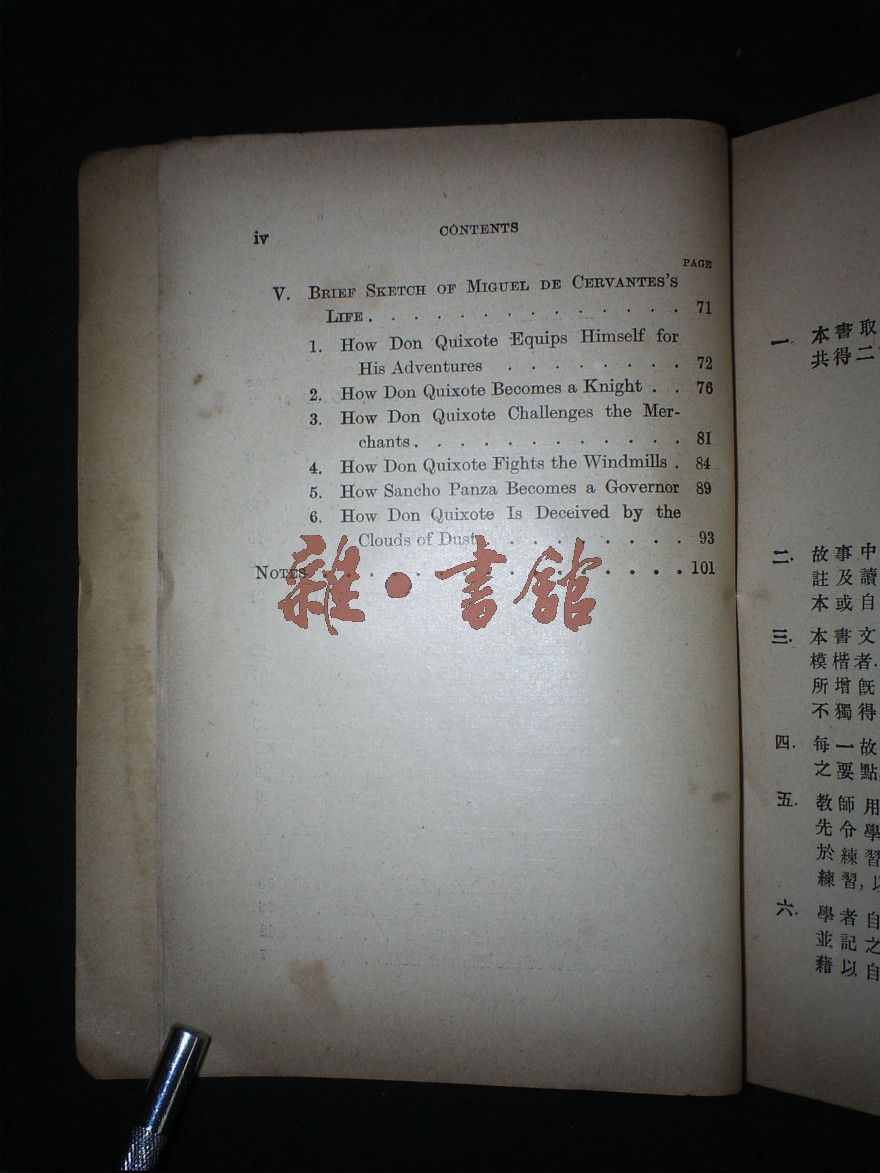 iv
CONTENTS
PAGE
V. BRIEF SKETCH OF MIGUEL DE CERVANTES'S
LIFE . . . . . . . . . . . . . . 71
1. How Don Quixote Equips Himself for
His Adventures . . . . . . . . 72
2. How Don Quixote Becomes a Knight . . 76
3. How Don Quixote Challenges the Mer-
chants . . . . . . . . . . . . 81
4. How Don Quixote Fights the Windmills . 84
5. How Sancho Panza Becomes a Governor 89
6. How Don Quixote Is Deceived by the
Clouds of Dust . . . . . . . . . 93
NOTES . . . . . . . . . . . . . . . . 101
雜·書館
一. 本書取
共得二
二. 故事中
註及讀
本或自
三. 本書文
模楷者.
所增既
不獨得
四. 每一故
之要點
五. 教師用
先令學
於練習
練習, 以
六. 學者自
並記之
藉以自